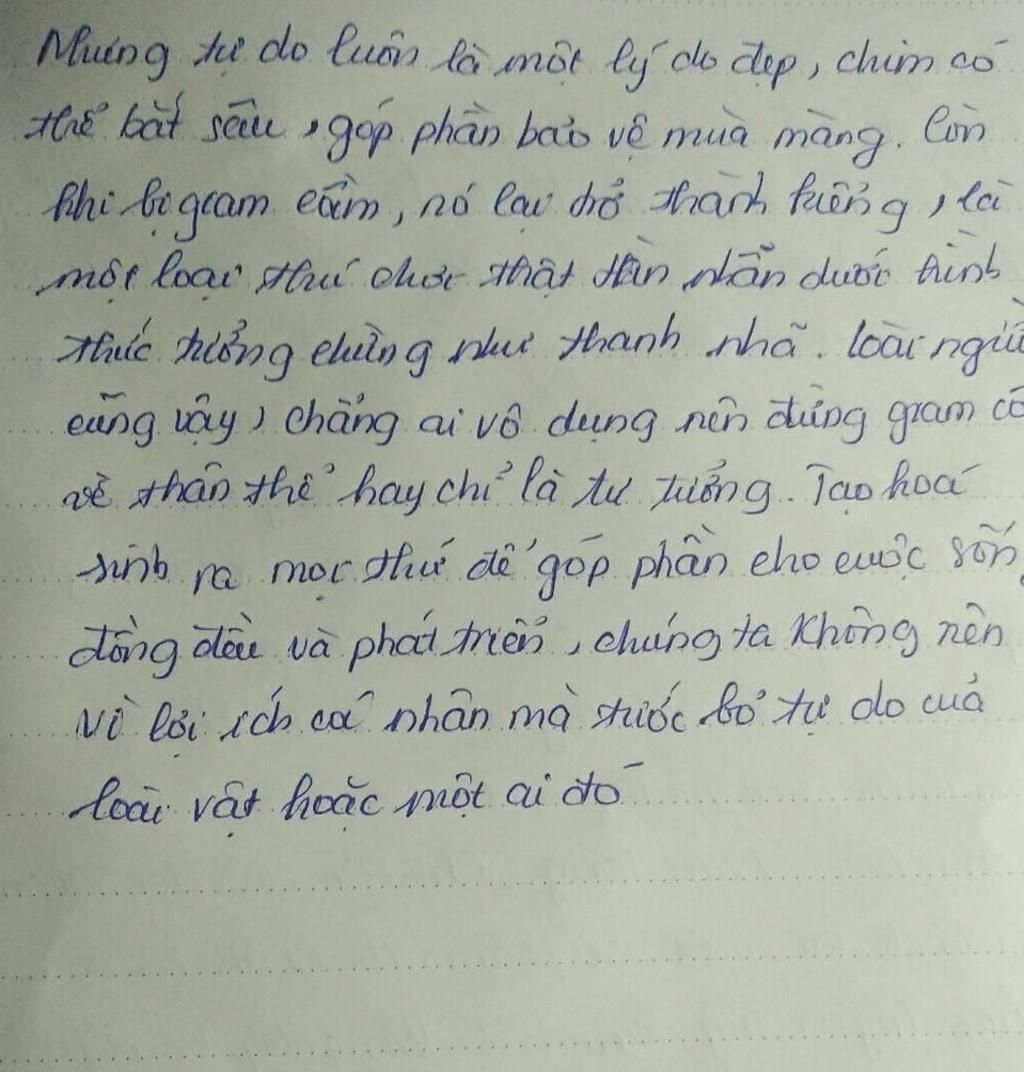 Nhưng tự do luôn là một lý do đẹp, chim có
thể bắt sâu, góp phần bảo vệ mùa màng. Còn
khi bị giam cầm, nó lại trở thành kiểng, là
một loại thú chơi thật tàn nhẫn dưới hình
thức tưởng chừng như thanh nhã. Loài người
cũng vậy, chẳng ai vô dụng nên đừng giam cầ
về thân thể hay chỉ là tư tưởng. Tạo hoá
sinh ra mọi thứ để góp phần cho cuộc sốn
đồng đều và phát triển, chúng ta không nên
vì lợi ích cá nhân mà tước bỏ tự do của
loài vật hoặc một ai đó